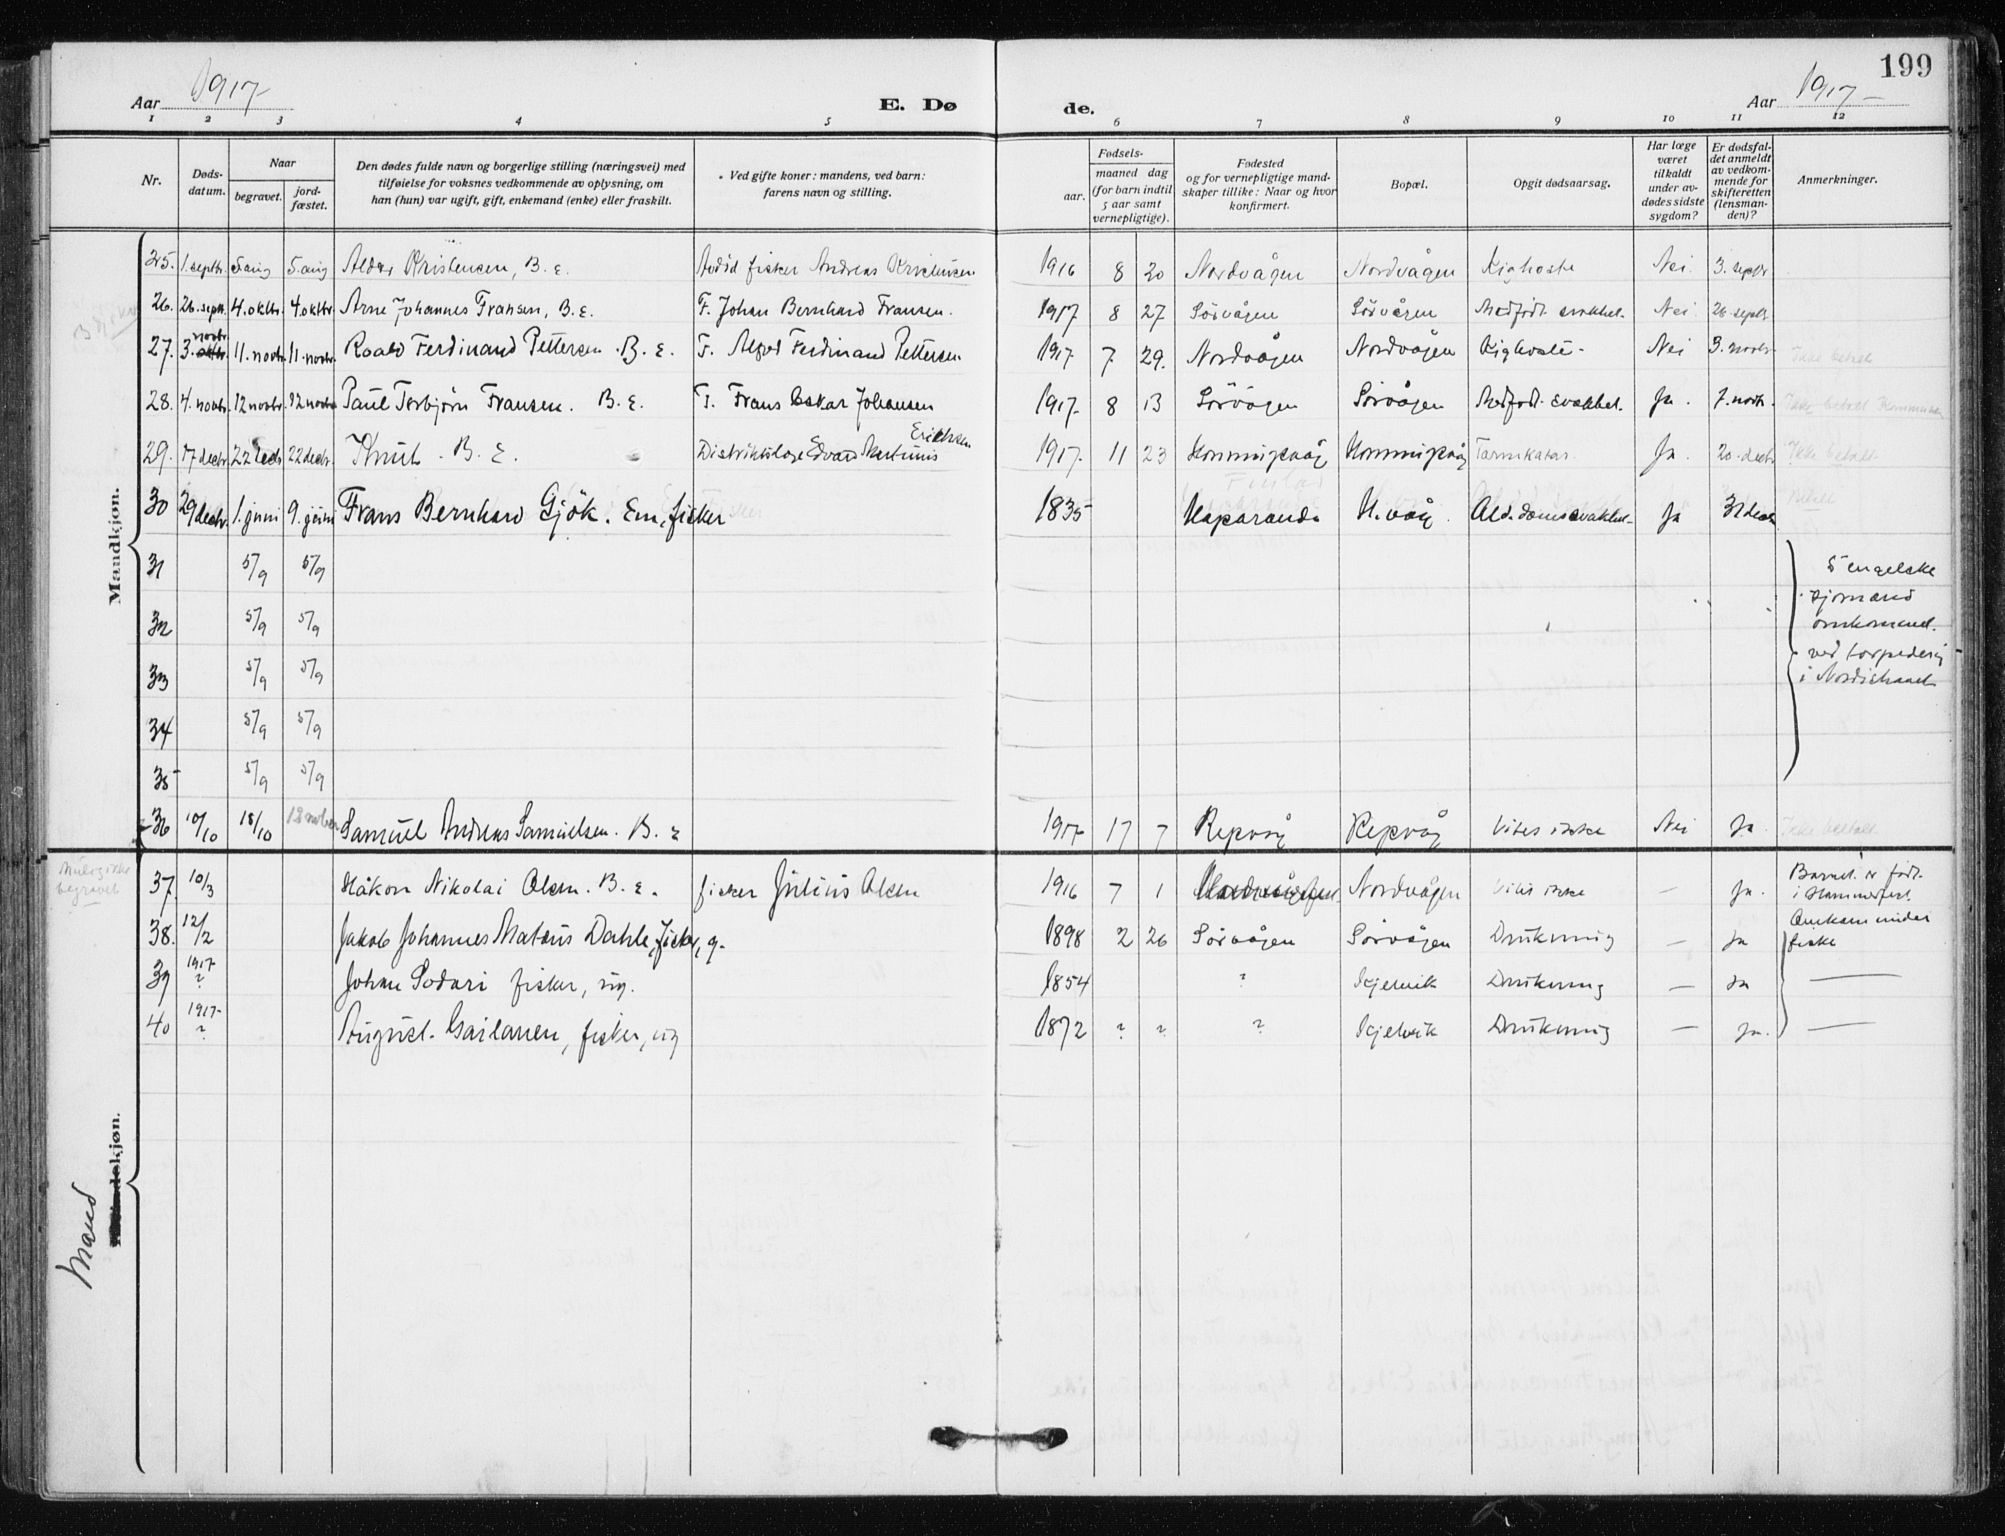 199
Aar 1917- E. Døde. Aar 1917-
1 2 3 4 5 6 7 8 9 10 11 12
Nr.
Døds-
datum.
Naar
begravet.
jord-
fæstet.
Den dødes fulde navn og borgerlige stilling (næringsvei) med
tilføielse for voksnes vedkommende av oplysning, om
han (hun) var ugift, gift, enkemand (enke) eller fraskilt.
Ved gifte koner: mandens, ved barn:
farens navn og stilling.
Fødsels-
aar.
maaned dag
(for barn indtil
5 aar samt
vernepligtige).
Fødested
og for vernepligtige mand-
skaper tillike: Naar og hvor
konfirmert.
Bopæl.
Opgit dødsaarsag.
Har læge
været
tilkaldt
under av-
dødes sidste
sygdom?
Er dødsfal-
det anmeldt
av vedkom-
mende for
skifteretten
(lensman-
den)?
Anmerkninger.
Mandkjøn.
25. 1. septbr. 5 aug 5. aug Kristensen, B. E. fisker Andreas Kristensen 1916 8 20 Nordvågen Nordvågen Kighoste Nei 3. septbr
26. 26. septb. 4. oktbr. 4. oktbr Arne Johannes Fransen, B. E. F. Johan Bernhard Fransen. 1917 8 27 Sörvågen Sörvågen Medfödt svakhet. Nei 26. septbr
27. 3. novbr 11. novbr 11. novbr Roald Ferdinand Pettersen. B. E. F. Ferdinand Pettersen 1917. 7 29. Nordvågen Nordvågen Kighoste- Nei 3. novbr- Ikke betalt
28. 4. novbr 12 novbr 12 novbr Paul Torbjörn Fransen. B. E. F. Frans Oskar Johansen 1917. 8 13 Sörvågen Sörvågen Medfödt svakhet. Ja. 7. novb. Ikke betalt
29. 17 decbr 22 decb 22 decbr. Knut. B. E. Distriktslæge Edvard Martinius Erichsen 1917. 11 23 Honningsvåg Honningsvåg Tarmkatar. Ja. 20. decbr Ikke betalt
30 29 decbr. 1. juni 9. juni Frans Bernhard Gjök. Em, fisker 1835 Haparanda H.våg. Alderdomssvakhet- Ja 31 decb Betalt
31 5/9 5/9
32 5/9 5/9
33 5/9 5/9
34 5/9 5/9
35 5/9 5/9
5 engelske
sjömænd
omkommet.
ved torpedering
i Nordishavet
36 10/10 18/10 Samuel Andreas Samuelsen. B. E 1917 17 7 Repvåg Repvåg Vites ikke Nei Ja. Ikke betalt
begravet
37. 10/3 Håkon Nikolai Olsen. B. E. fisker Julius Olsen 1916 7 1 Nordvågen Vites ikke - Ja. Barnet er födt
i Hammerfest.
38. 12/2 Jakob Johannes Dahle, fisker, g. 1898 2 26 Sörvågen Sörvågen Drukning - Ja Omkom under
fiske
39 1917 ? Johan Sodari fisker, ug. 1854 ? Kjelvik Drukning - Ja
40 1917- ? August. Gailanen, fisker, ug 1872 ? ? ? Kjelvik Drukning - Ja.
Mand
Kvindekjøn.